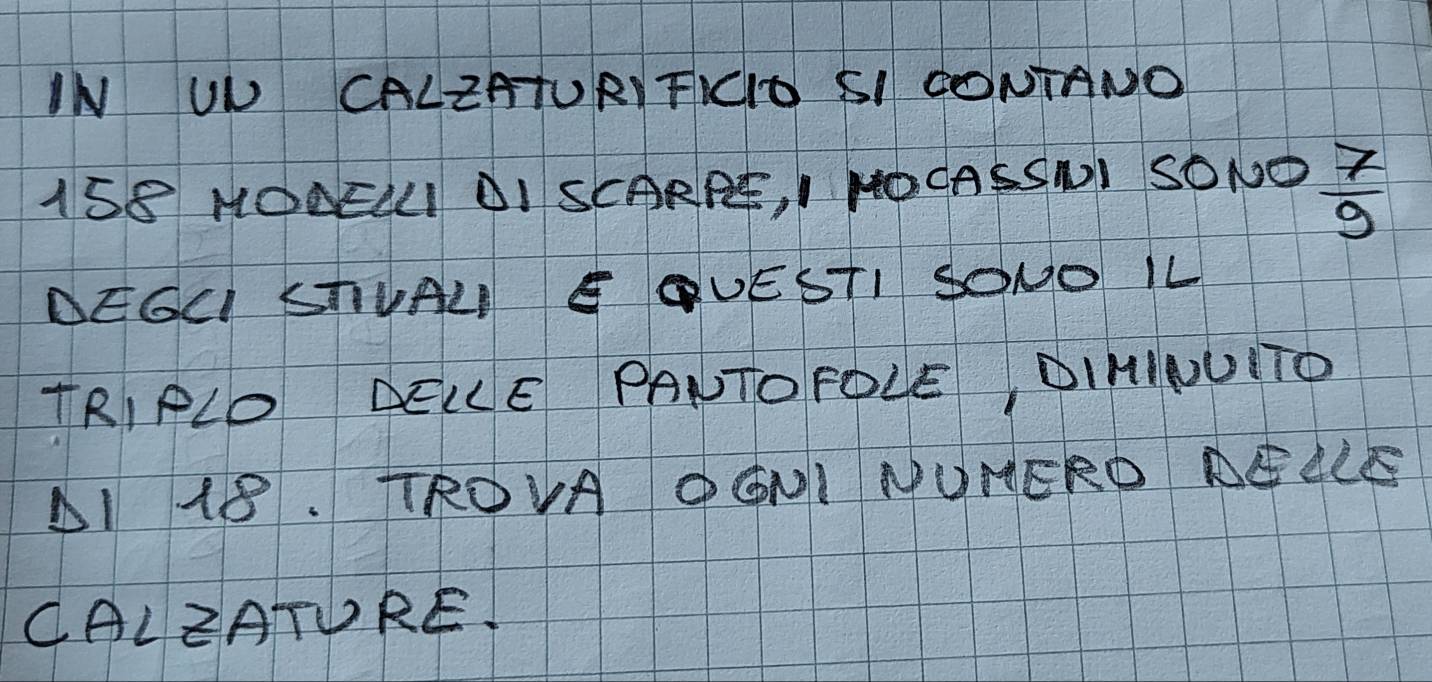 IN UN CALZATURIFICIO SI CONTANO
158 MODELLI DI SCARPE, I MOCASSINI SONO 7/9
DEGLI STIVALI E QUESTI SONO IL
TRIPLO DELLE PANTOFOLE, DIMINUITO
DI 18. TROVA OGNI NUMERO DELLE
CALZATURE.